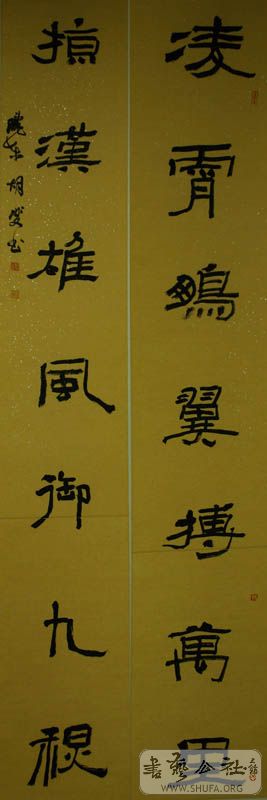 凌霄鵬翼搏萬里
掠漢雄風御九
書藝公社
WWW.SHUFA.ORG